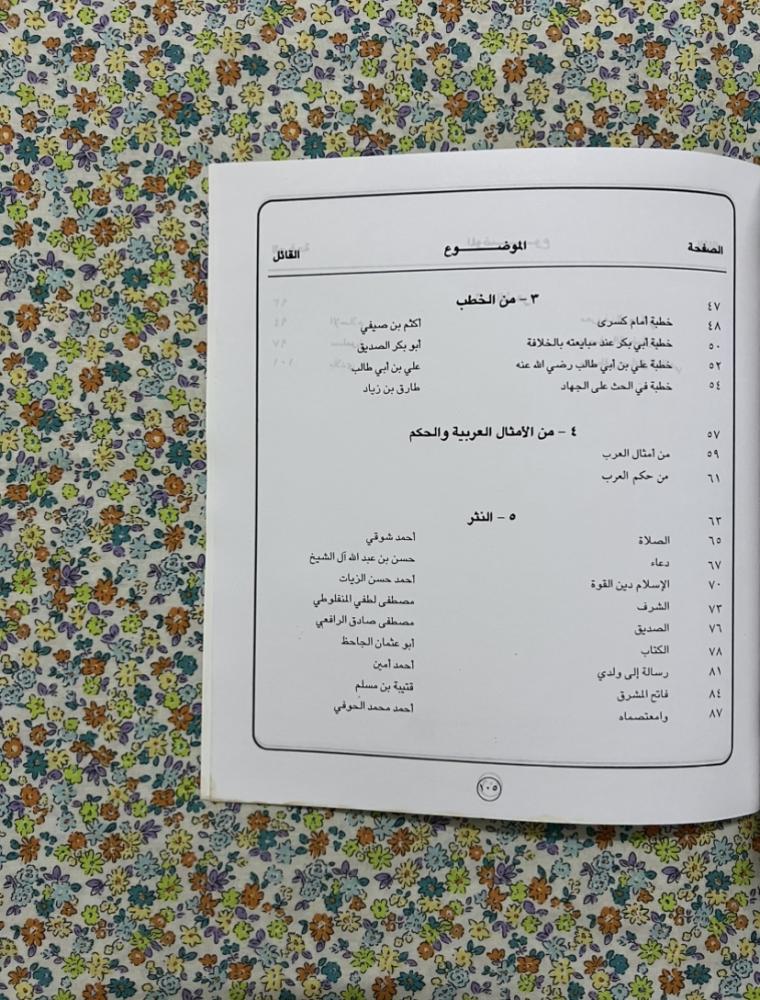 الصفحة الموضـــــــوع القائل
٤٧ ٣ - من الخطب
٤٨ خطبة أمام كسرى أكثم بن صيفي
٥٠ خطبة أبي بكر عند مبايعته بالخلافة أبو بكر الصديق
٥٢ خطبة علي بن أبي طالب رضي الله عنه علي بن أبي طالب
٥٤ خطبة في الحث على الجهاد طارق بن زياد
٥٧ ٤ - من الأمثال العربية والحكم
٥٩ من أمثال العرب
٦١ من حكم العرب
٦٣ ٥ - النثر
٦٥ الصلاة أحمد شوقي
٦٧ دعاء حسن بن عبد الله آل الشيخ
٧٠ الإسلام دين القوة أحمد حسن الزيات
٧٣ الشرف مصطفى لطفي المنفلوطي
٧٦ الصديق مصطفى صادق الرافعي
٧٨ الكتاب أبو عثمان الجاحظ
٨١ رسالة إلى ولدي أحمد أمين
٨٤ فاتح المشرق قتيبة بن مسلم
٨٧ وامعتصماه أحمد محمد الحوفي
١٠٥